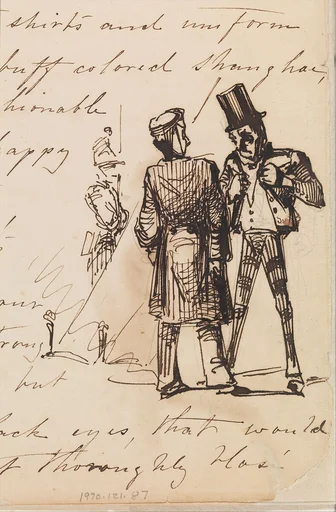 shirts and uniform
buff colored Shanghai,
hionable
happy
but
ack eyes, that would
f thoroughly blas'
1970.121.87